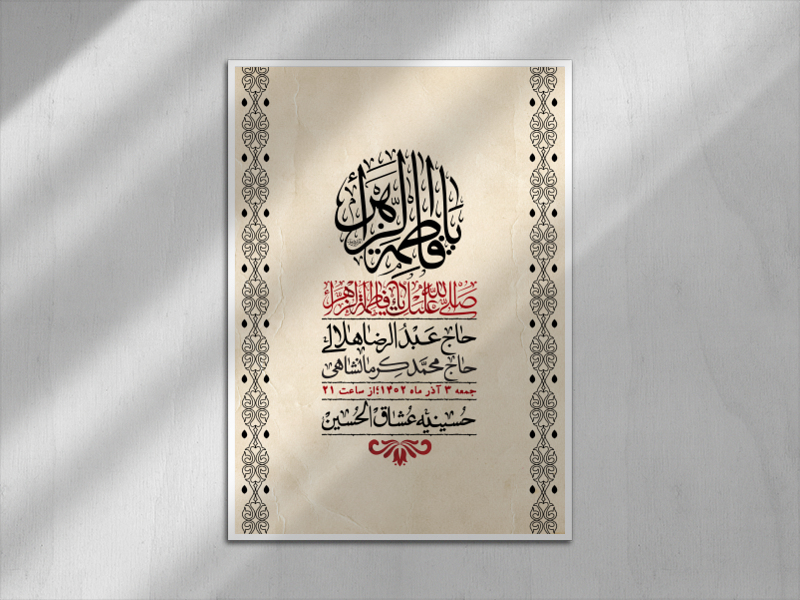 یا فاطمة الزهرا
صَلَّی اللهُ عَلَیْکِ یا فاطِمَةُ الزَّهْراء
حاج عَبْدُالرضا هلالی
حاج محمّد کرمانشاهی
جمعه ۳ آذر ماه ۱۴۰۲؛از ساعت ۲۱
حُسینیّه عُشاق الحُسین